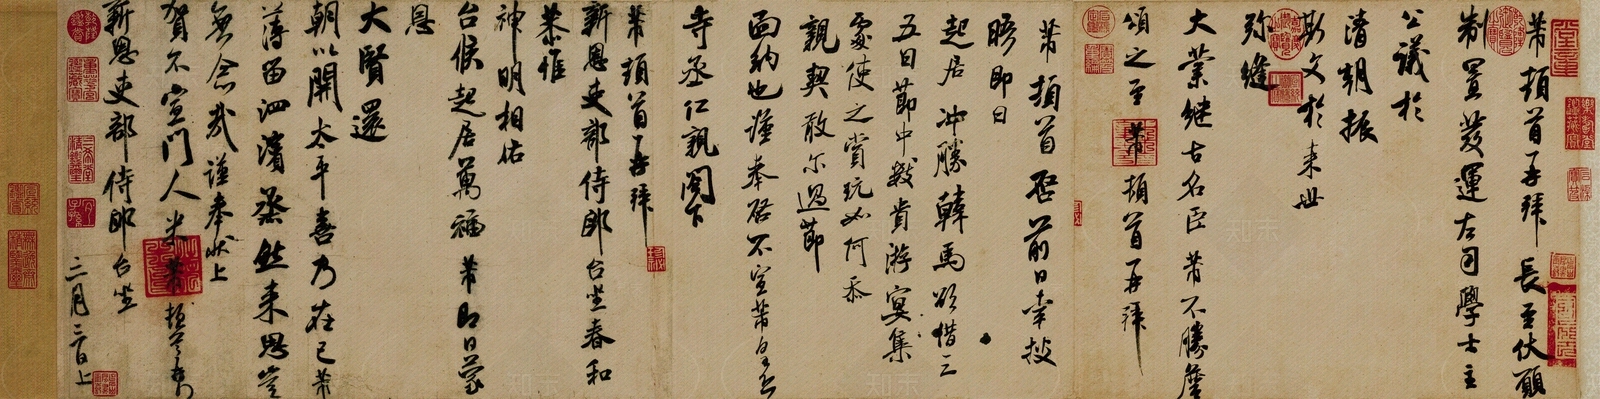 芾頓首再拜 長至伏願
制置發運左司學士主
公議於
清朝振
斯文於來世
弥縫
大業継古名臣芾不勝詹
頌之至芾頓首再拜
芾頓首啓前日幸披
晤即日
起居冲勝韓馬欲借三
五日節中數貴游宴集
處使之賞玩如何忝
親契敢尔過節
面納也謹奉啓不宣芾
寺丞仁親閣下
芾頓首再拜
新恩吏部侍郎台坐春和
恭惟
神明相佑
台候起居萬福芾即日蒙
恩
大賢還
朝以開太平喜乃在己芾
薄留泗濱烝然来思豈
無念哉謹奉狀上
賀不宣門人米芾頓首
新恩吏部侍郎台坐
三月 日上